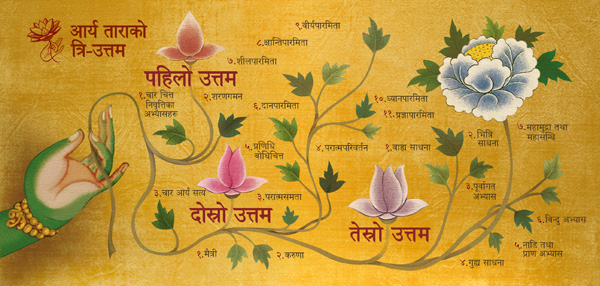 आर्य ताराको
त्रि-उत्तम
पहिलो उत्तम
१.चार चित्त
निवृत्तिका
अभ्यासहरु
२.शरणगमन
३.चार आर्य सत्य
दोस्रो उत्तम
१.मैत्री
२.करुणा
३.परात्मसमता
४.परात्मपरिवर्तन
५.प्रणिधि
बोधिचित्त
६.दानपारमिता
७.शीलपारमिता
८.क्षान्तिपारमिता
९.वीर्यपारमिता
१०.ध्यानपारमिता
११.प्रज्ञापारमिता
तेस्रो उत्तम
१.वाह्य साधना
२.भित्रि
साधना
३.पूर्वागत
अभ्यास
४.गुह्य साधना
५.नाडि तथा
प्राण अभ्यास
६.विन्दु अभ्यास
७.महामुद्रा तथा
महासन्धि